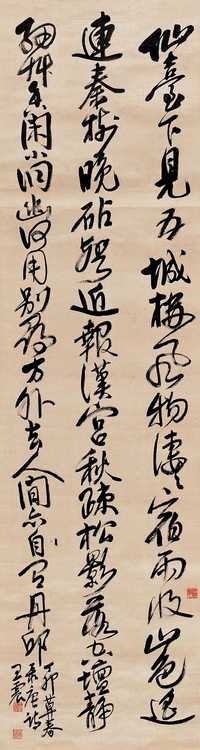 仙臺下見五城樓風物淒〻宿雨收山色遥
連秦樹晚砧聲近報漢宮秋疎松影落空壇靜
細艸香闲小洞幽何用别尋方外去人間亦自有丹邱
丁卯暮春
录唐詩
王震